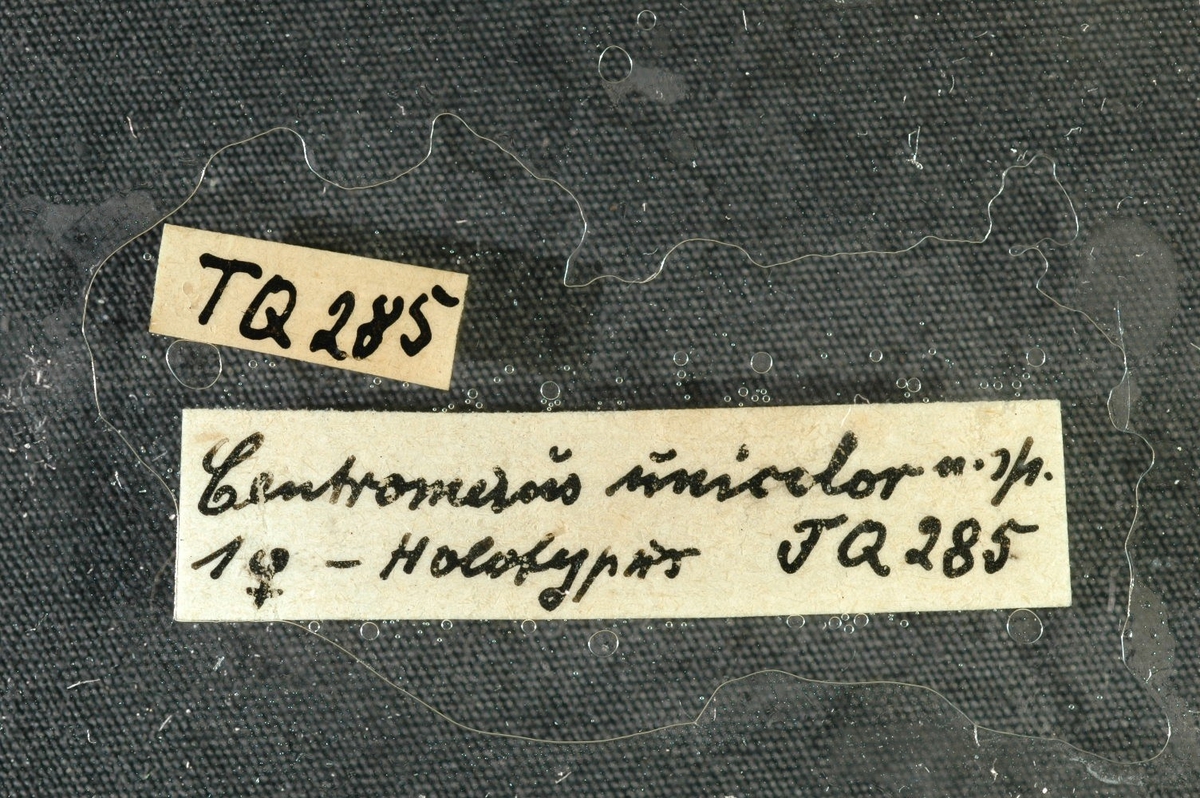 TQ 285
Centromerus unicolor n. sp.
1♀ – Holotypus TQ 285